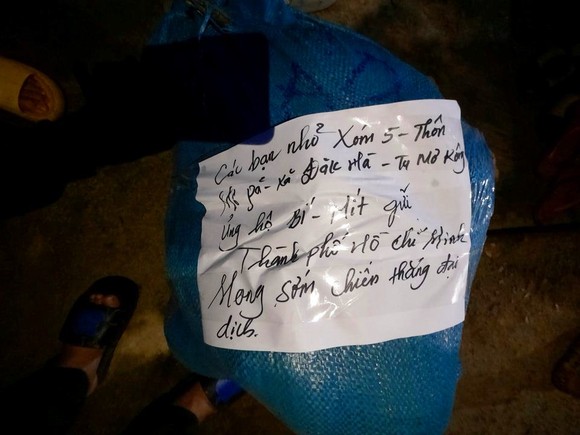 Các bạn nhỏ Xóm 5 - Thôn
Pá - xã Đăk Hà - Tu Mơ Rông
Ủng hộ Bí - Mít gửi
Thành phố Hồ Chí Minh
Mong sớm chiến thắng đại
dịch.